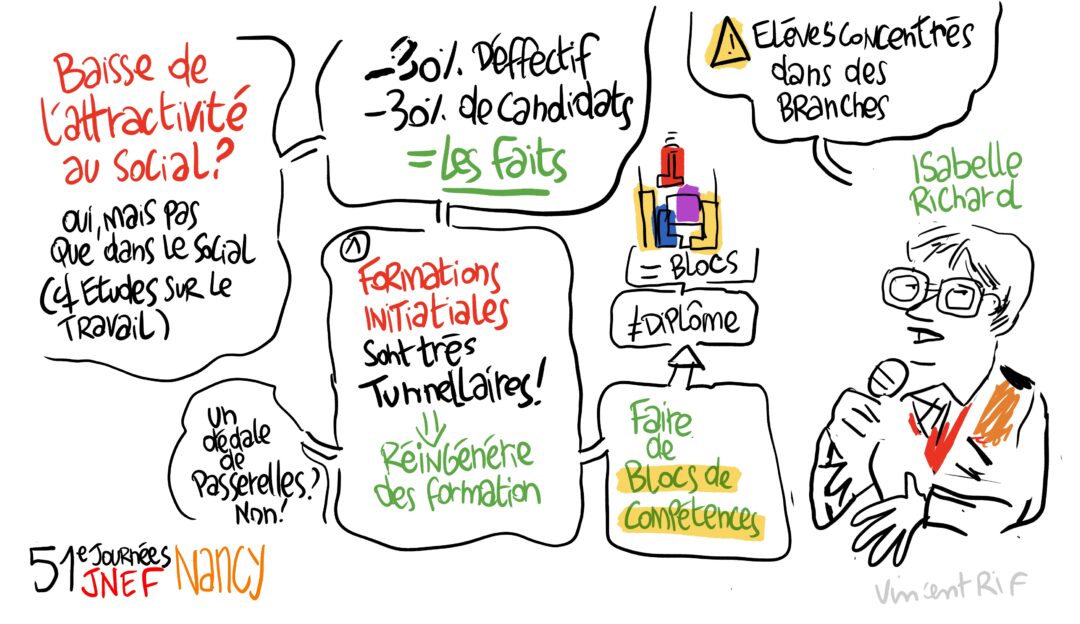 Baisse de
l'attractivité
au social?
oui, mais pas
que dans le social
(cf Etudes sur le
travail)
-30% D'effectif
-30% de candidats
= Les faits
⚠ Elèves concentrés
dans des
Branches
Isabelle
Richard
1
Formations
initiatiales
sont très
Tunnellaires!
⇓
Réingénérie
des formation
Un
dédale
de
Passerelles?
Non!
= Blocs
≠Diplôme
Faire
de
Blocs de
compétences
51e Journées
JNEF Nancy
Vincent Rif